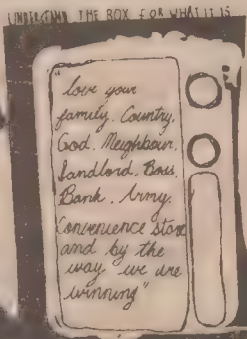 UNDERSTAND THE BOX FOR WHAT IT IS
"love your
family. Country.
God. Neighbour.
Landlord. Boss.
Bank. Army.
Convenience Store
and by the
way "we are
winning"